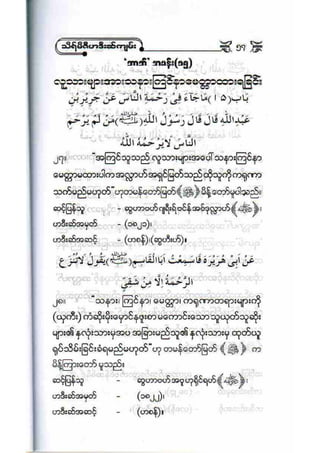 သိရ်မီဇီဟဒီးဆ်ကျမ်း ၅၇
"အာဘ်" အခန်း(၁၅)
လူသားများအားသနားကြင်နာမေတ္တာထားရခြင်း
باب(١٥) مَاجَآءَ فِي رَحْمَةِ النَّاسِ عَنْ جَرِيْرِ بْنِ
عَبْدِ اللهِ قَالَ قَالَ رَسُوْلُ اللهِ(ﷺ)مَنْ لَمْ يَرْحَمِ
النَّاسَ لَا يَرْحَمُهُ اللهُ
၂၇။ "အကြင်သူသည် လူသားများအပေါ် သနားကြင်နာ
မေတ္တာမထားပါကအလ္လာဟ်အရှင်မြတ်သည်ထိုသူကိုကရုဏာ
သက်မည်မဟုတ်"ဟုတမန်တော်မြတ်(ﷺ)မိန့်တော်မူပါသည်။
ဆင့်ပြန်သူ - ဆွဟာဗဟ်ဂျရီးရ်ဗင်န်အဗ်ဒုလ္လာဟ်(ﷺ)။
ဟဒီးဆ်အမှတ် - (၁၈၂၁)။
ဟဒီးဆ်အဆင့် - (ဟစန်)၊(ဆွဟီးဟ်)။
عَنْ أَبِي هُرَيْرَةَ قَالَ سَمِعْتُ أَبَا الْقَاسِمِ(ﷺ)يَقُوْلُ لَا تُنْزَعُ
الرَّحْمَةُ إِلَّا مِنْ شَقِيٍّ
၂၈။ "သနား၊ ကြင်နာ၊ မေတ္တာ၊ ကရုဏာတရားများကို
(ယုကီး) ကံဆိုးမိုးမှောင်နေဖူးစာမကောင်းသောသူယုတ်သူဆိုး
များ၏ နှလုံးသားမှအပ အခြားမည်သူ၏ နှလုံးသားမှ ထုတ်ယူ
ရုပ်သိမ်းခြင်းခံရမည်မဟုတ်"ဟု တမန်တော်မြတ် (ﷺ) က
မိန့်ကြားတော် မူသည်။
ဆင့်ပြန်သူ - ဆွဟာဗဟ်အဗူဟုရိုင်ရဟ်(ﷺ)။
ဟဒီးဆ်အမှတ် - (၁၈၂၂)။
ဟဒီးဆ်အဆင့် - (ဟစန်)။